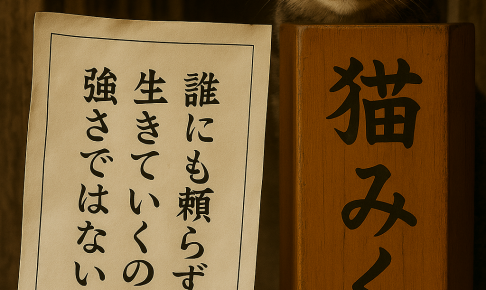 誰にも頼らず
生きていくの
強さではない
猫みく